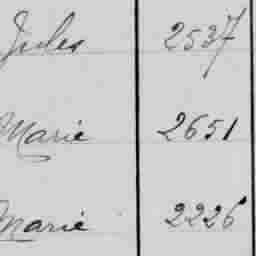 Jules 2537
Marie 2651
Marie 2226